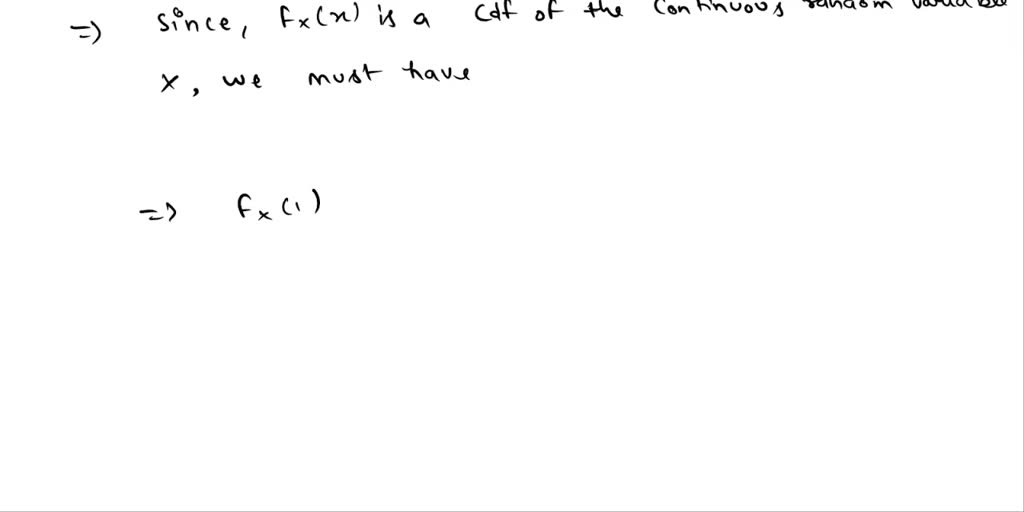 => Since, Fx(x) is a Cdf of the Continuous random variable
x, we must have
=> Fx(1)